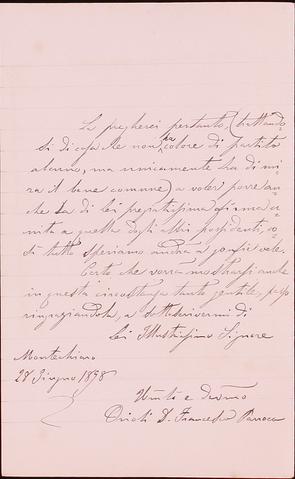 La pregherei pertanto, (trattando-
si di cosa che non ha colore di partito
alcuno, ma unicamente ha di mi-
ra il bene comune) a voler porre an-
che la di lei pregiatissima firma u-
nita a quella degli altri possidenti, e
di tutto speriamo andrà a gonfie vele.
Certo che vorrà mostrarsi anche
in questa circostanza tanto gentile, passo
ringraziandola, a sottoscrivermi di
Lei Illustrissimo Signore
Montechiaro
28 Giugno 1898
Umile e Devmo
D. Francesco Parroco